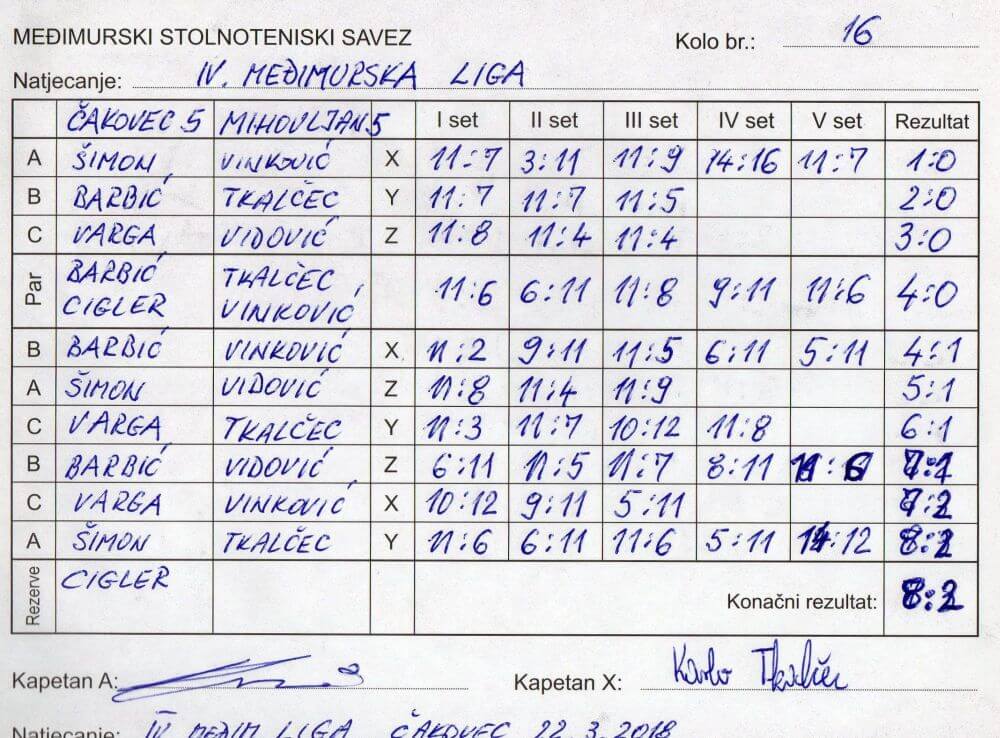 MEĐIMURSKI STOLNOTENISKI SAVEZ
Kolo br.: 16
Natjecanje: IV. MEĐIMURSKA LIGA
ČAKOVEC 5 MIHOVLJAN 5 I set II set III set IV set V set Rezultat
A ŠIMON VINKOVIĆ X 11:7 3:11 11:9 14:16 11:7 1:0
B BARBIĆ TKALČEC Y 11:7 11:7 11:5 2:0
C VARGA VIDOVIĆ Z 11:8 11:4 11:4 3:0
Par BARBIĆ CIGLER TKALČEC, VINKOVIĆ 11:6 6:11 11:8 9:11 11:6 4:0
B BARBIĆ VINKOVIĆ X 11:2 9:11 11:5 6:11 5:11 4:1
A ŠIMON VIDOVIĆ Z 11:8 11:4 11:9 5:1
C VARGA TKALČEC Y 11:3 11:7 10:12 11:8 6:1
B BARBIĆ VIDOVIĆ Z 6:11 11:5 11:7 8:11 11:6 7:1
C VARGA VINKOVIĆ X 10:12 9:11 5:11 7:2
A ŠIMON TKALČEC Y 11:6 6:11 11:6 5:11 14:12 8:2
Rezerve CIGLER Konačni rezultat: 8:2
Kapetan A: Kapetan X: Karlo Tkalčec
Natjecanje: IV MEĐIM LIGA ČAKOVEC 22.3.2018